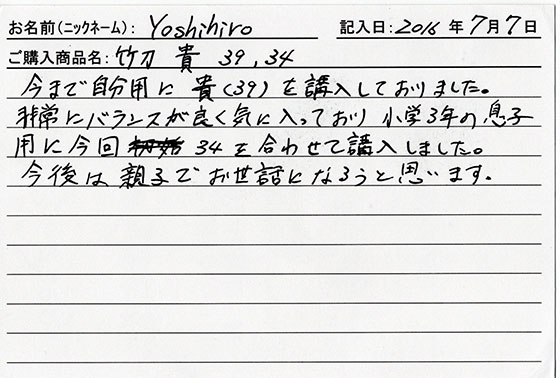 お名前(ニックネーム): Yoshihiro 記入日: 2016 年 7月 7日
ご購入商品名: 竹刀 貴 39, 34
今まで自分用に 貴(39)を購入しておりました。
非常にバランスが良く気に入っており 小学3年の息子
用に今回 34を合わせて購入しました。
今後は親子でお世話になろうと思います。